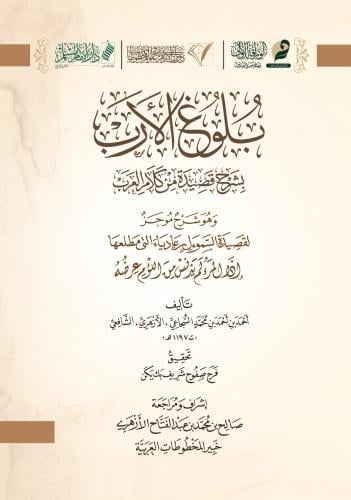 بُلُوغُ الأَرَبِ
بِشَرْحِ قَصِيدَةٍ مِنْ كَلَامِ العَرَبِ
وَهُوَ شَرْحٌ مُوجَزٌ
لِقَصِيدَةِ السَّمَوْءَلِ بنِ عَادِيَاءَ الَّتِي مَطْلَعُهَا
إِذَا المَرْءُ لَمْ يَدْنَسْ مِنَ اللُّؤْمِ عِرْضُهُ
تَأليف
أَحْمَدَ بنِ أَحْمَدَ بنِ مُحَمَّدٍ السُّجَاعِيِّ، الأَزْهَرِيِّ، الشَّافِعِيِّ
(ت ١١٩٧ هـ)
تَحْقِيقُ
فَرَح صَفُوح شَرِيف بَك يَكَن
إِشْرَاف وَمُرَاجَعَة
صَالِح بن مُحَمَّد بن عَبْدِ الفَتَّاحِ الأَزْهَرِي
خَبِيرِ المَخْطُوطَاتِ العَرَبِيَّةِ